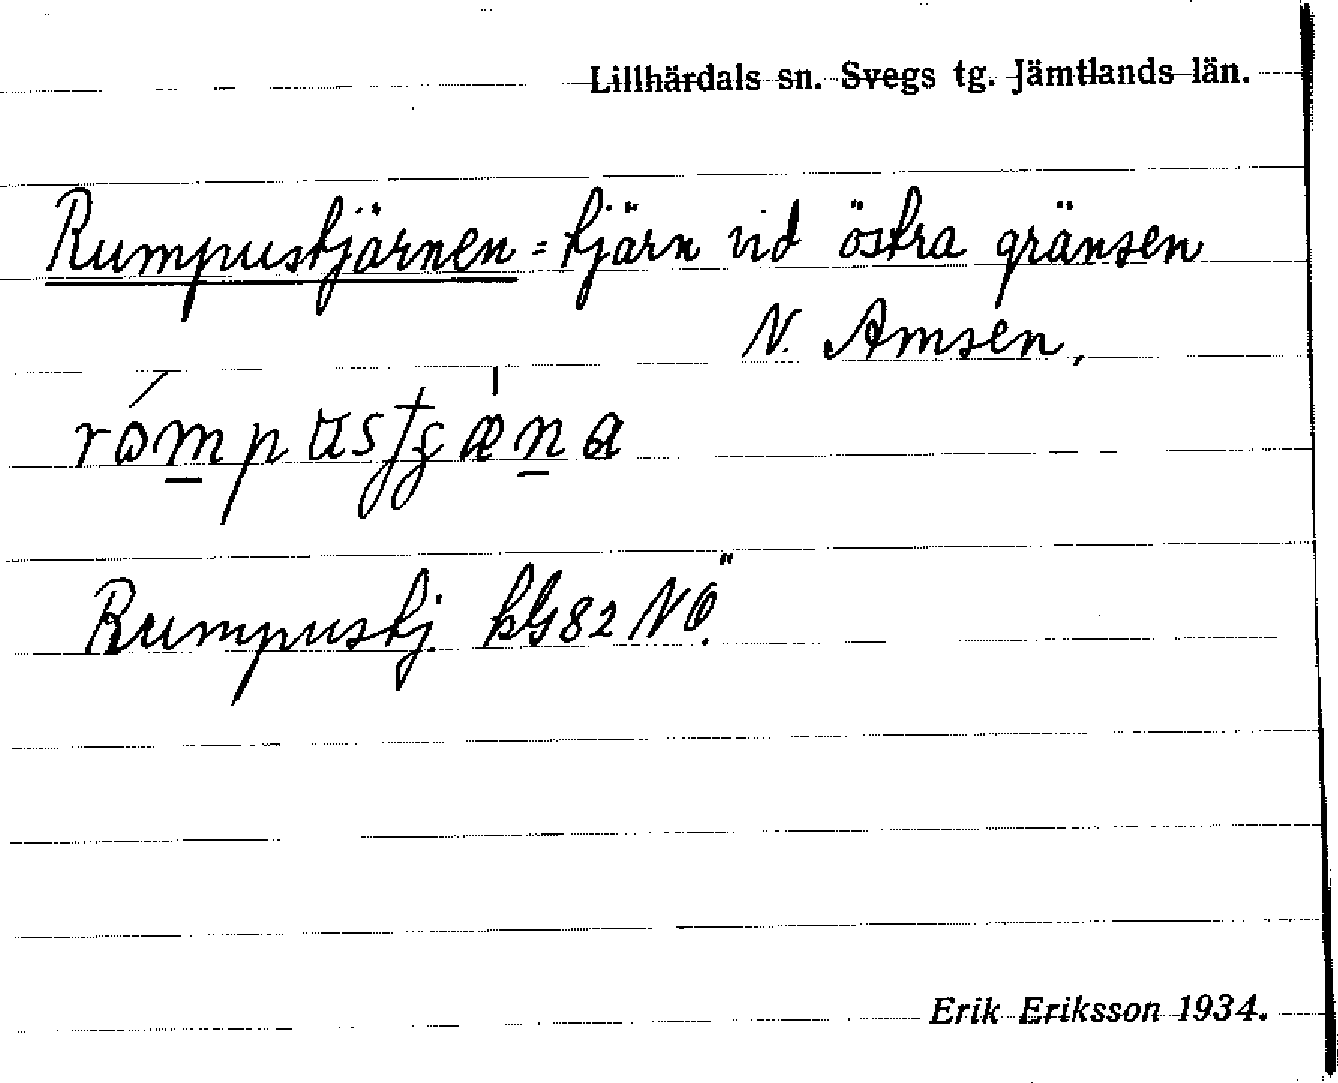 Lillhärdals sn. Svegs tg. Jämtlands län.
Rumpustjärnen = tjärn vid östra gränsen
N. Amsen.
Rumpustj. kG82 NÖ.
Erik Eriksson 1934.